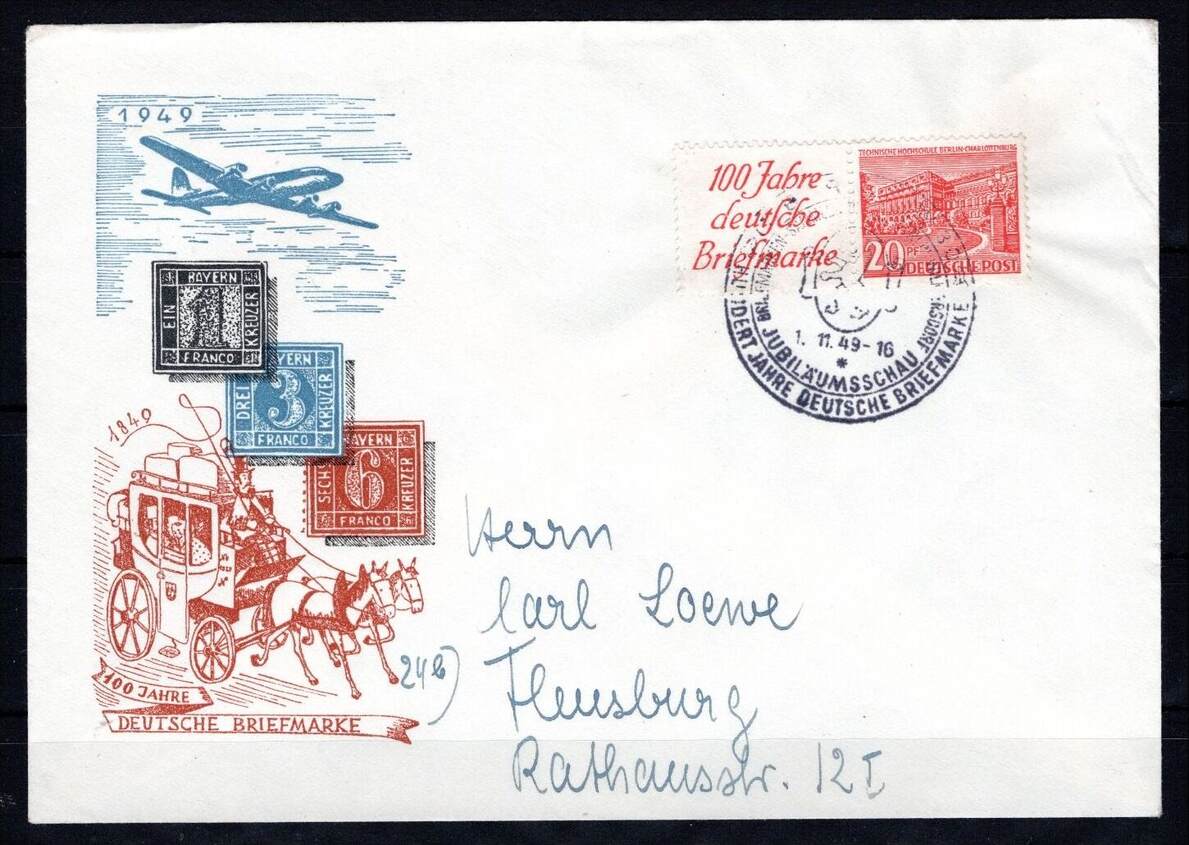 1949
BAYERN
EIN
1
KREUZER
FRANCO
BAYERN
DREI
3
KREUZER
FRANCO
BAYERN
SECHS
6
KREUZER
FRANCO
1849
100 JAHRE
DEUTSCHE BRIEFMARKE
100 Jahre
deutsche
Briefmarke
TECHNISCHE HOCHSCHULE BERLIN-CHARLOTTENBURG
20 PF
DEUTSCHE POST
1. 11. 49-16
*
JUBILÄUMSSCHAU
HUNDERT JAHRE DEUTSCHE BRIEFMARKE
Herrn
Carl Loewe
24b) Flensburg
Rathausstr. 12 I